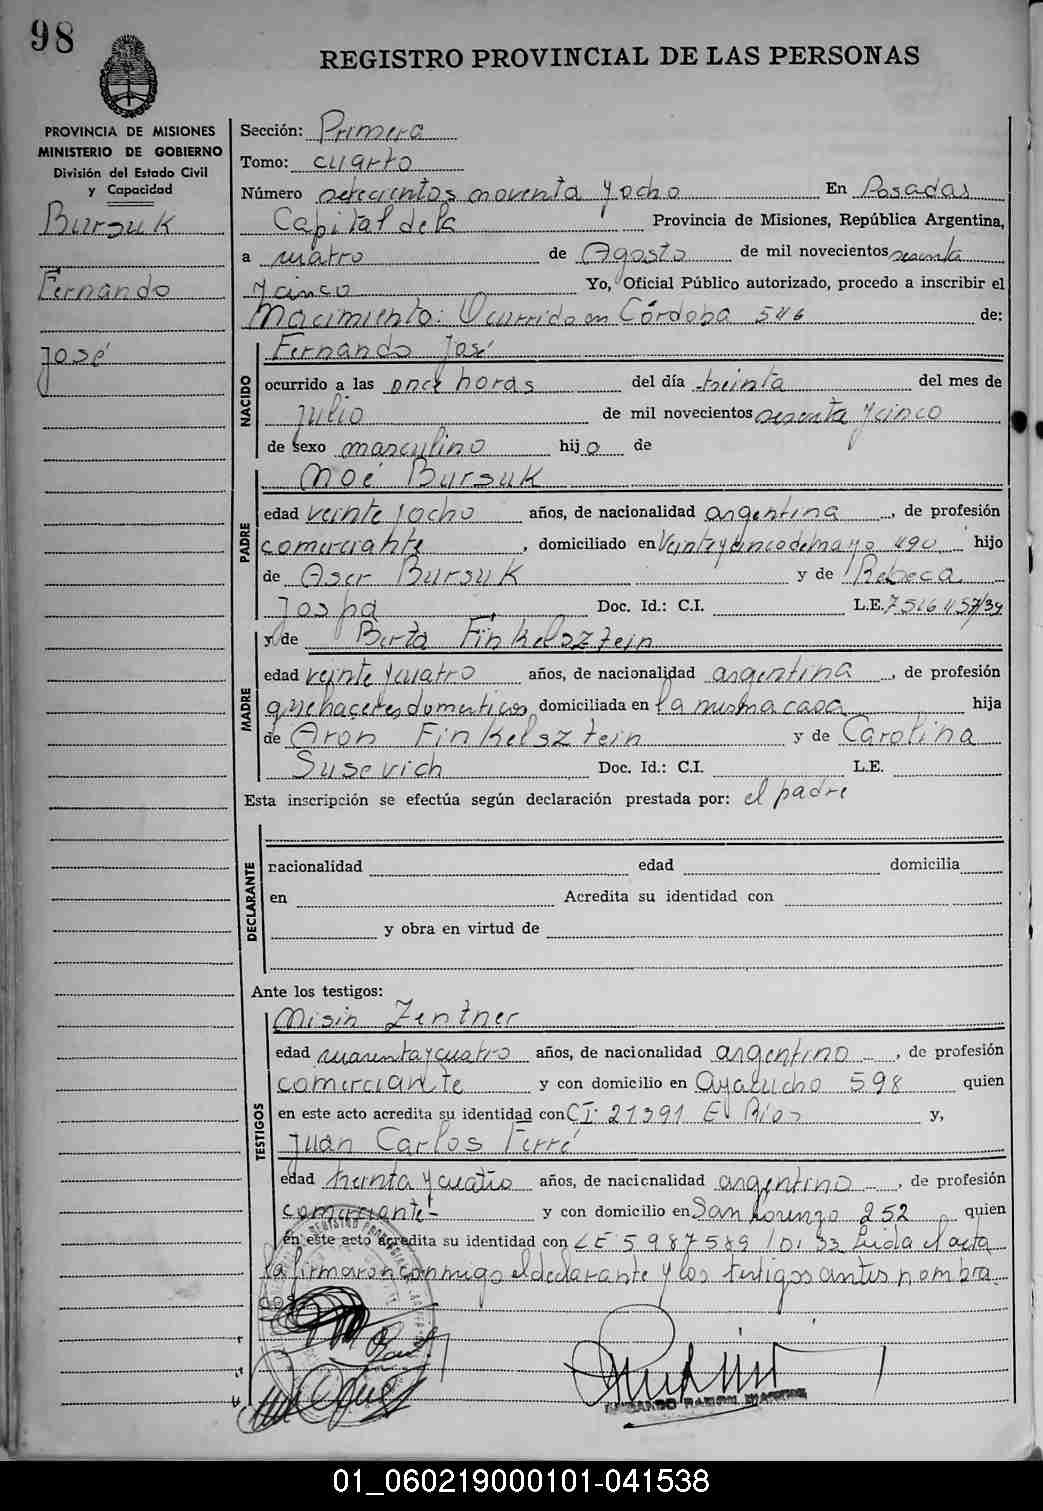 98
REGISTRO PROVINCIAL DE LAS PERSONAS
PROVINCIA DE MISIONES
MINISTERIO DE GOBIERNO
División del Estado Civil
y Capacidad
Bursuk
Fernando
José
Sección: Primera
Tomo: cuarto
Número setecientos noventa y ocho En Posadas
Capital de la Provincia de Misiones, República Argentina,
a cuatro de Agosto de mil novecientos sesenta
y cinco Yo, Oficial Público autorizado, procedo a inscribir el
Nacimiento: Ocurrido en Córdoba 546 de:
NACIDO
Fernando José
ocurrido a las once horas del día treinta del mes de
julio de mil novecientos sesenta y cinco
de sexo masculino hijo de
PADRE
Noé Bursuk
edad veinte y ocho años, de nacionalidad argentina, de profesión
comerciante, domiciliado en Veinte y cinco de mayo 490 hijo
de Aser Bursuk y de Rebeca
Jospa Doc. Id.: C.I. L.E.
MADRE
y de Berta Finkelsztein
edad veinte y cuatro años, de nacionalidad argentina, de profesión
quehaceres domesticos, domiciliada en la misma casa hija
de Aron Finkelsztein y de Carolina
Susevich Doc. Id.: C.I. L.E.
Esta inscripción se efectúa según declaración prestada por: el padre
DECLARANTE
nacionalidad edad domicilia
en Acredita su identidad con
y obra en virtud de
Ante los testigos:
TESTIGOS
Misin Zentner
edad cuarenta y cuatro años, de nacionalidad argentino, de profesión
comerciante y con domicilio en Ayacucho 598 quien
en este acto acredita su identidad con CI. 21391 E Rios y,
Juan Carlos Ferré
edad treinta y cuatro años, de nacionalidad argentino, de profesión
comerciante- y con domicilio en San Lorenzo 252 quien
en este acto acredita su identidad con LE 5987589 /D. 33 Leida el acta
la firmaron conmigo el declarante y los testigos antes nombra.
01_060219000101-041538